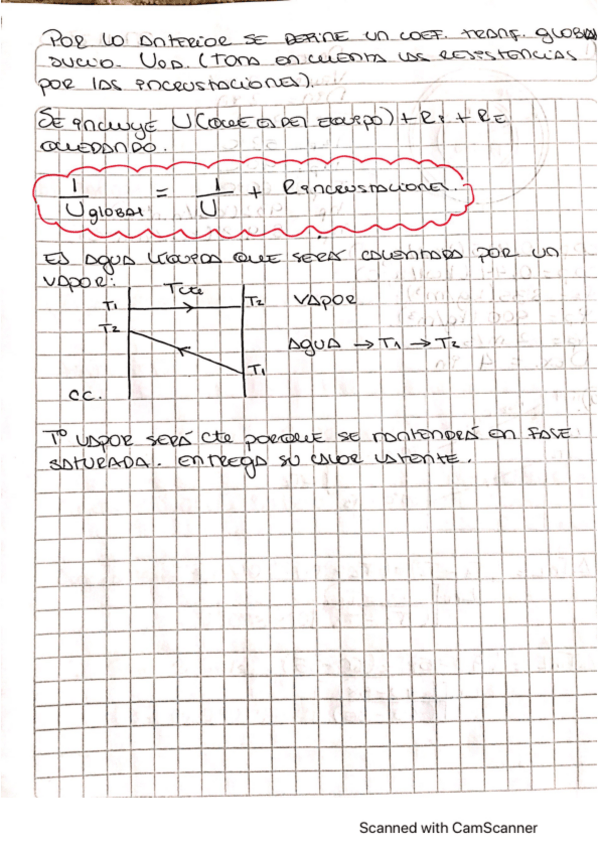 POR LO ANTERIOR SE DEFINE UN COEF. TRANF. GLOBAL
SUCIO. UOD. (TOMA EN CUENTA LAS RESISTENCIAS
POR LAS INCRUSTACIONES).
SE INCLUYE U (QUE ES DEL EQUIPO) + RI + RE
QUEDANDO.
1/U GLOBAL = 1/U + R INCRUSTACIONES.
ES AGUA LIQUIDA QUE SERÁ CALENTADA POR UN
VAPOR:
Tcte
T1 T2 VAPOR
T2
AGUA → T1 → T2
T1
CC.
Tº VAPOR SERÁ cte PORQUE SE MANTENDRÁ EN FASE
SATURADA. ENTREGA SU CALOR LATENTE.
Scanned with CamScanner